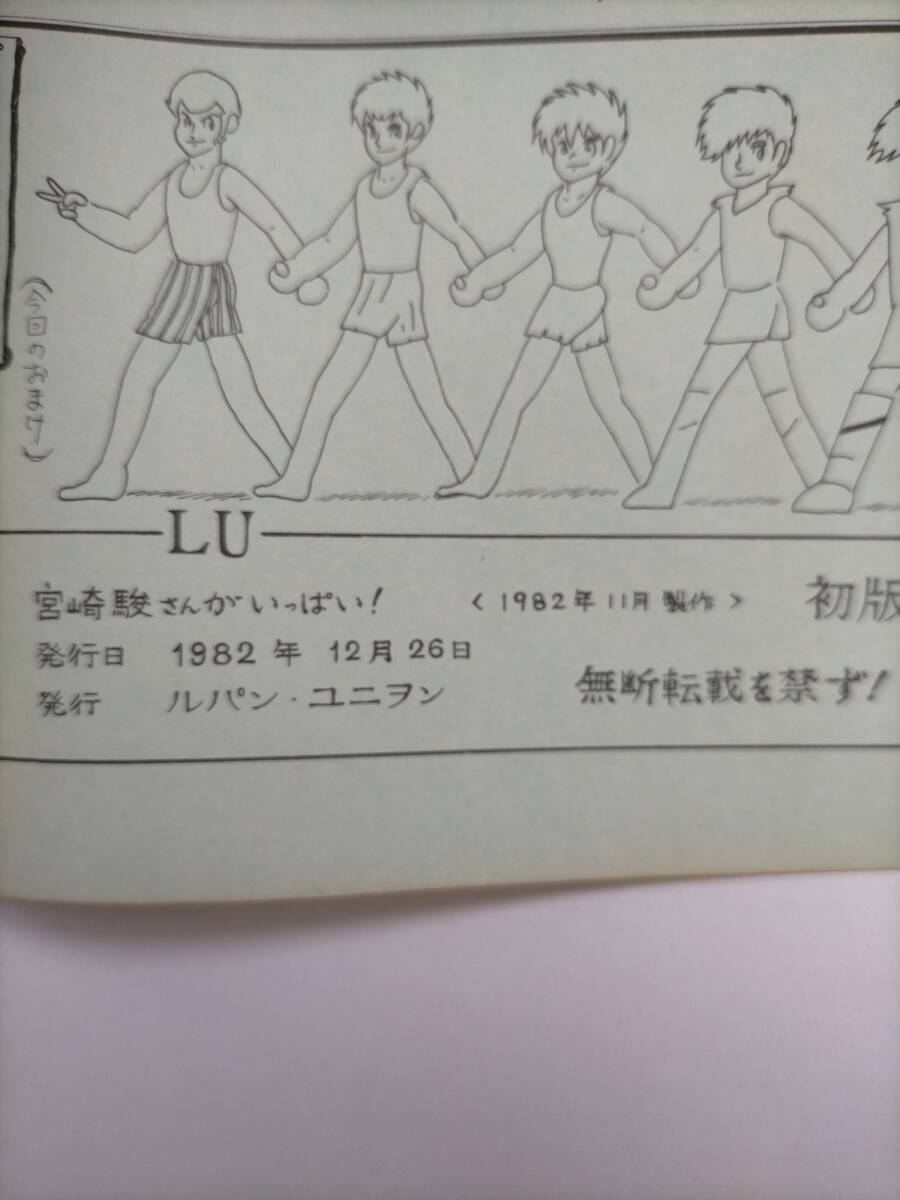 (今回のおまけー)
LU
宮崎駿さんがいっぱい! <1982年11月製作> 初版
発行日 1982年 12月26日
発行 ルパン・ユニヲン 無断転載を禁ず!